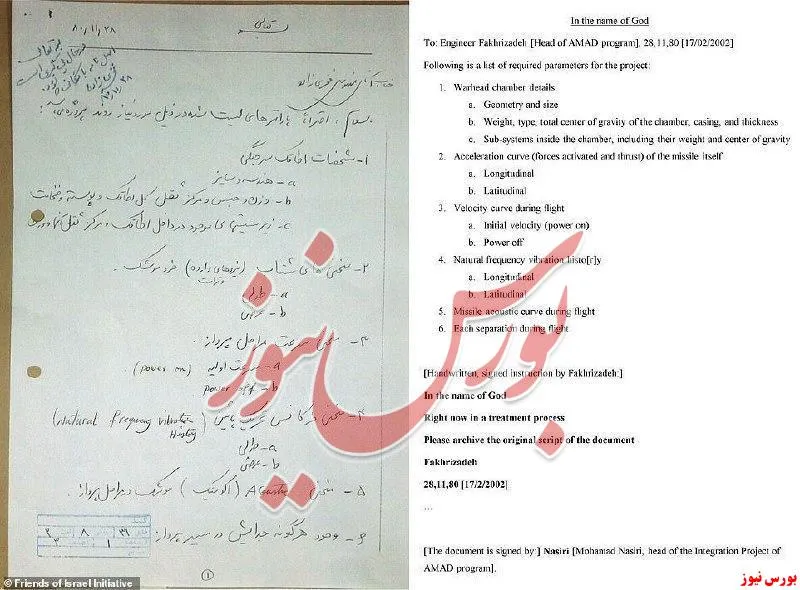 ۸۰/۱۱/۲۸
۱- مشخصات اطاقک سرجنگی
a- هندسه و سایز
b- وزن و جنس و مرکز ثقل کل اطاقک و پوسته و ضخامت
c- زیر سیستمهای موجود در داخل اطاقک و مرکز ثقل آنها و وزن
۲- منحنی های شتاب (نیروهای وارده) خود موشک.
a- طولی
b- عرضی
۳- منحنی سرعت مراحل پرواز.
a- سرعت اولیه (power on)
b- power off
۴- منحنی فرکانس (Natural frequency vibration
a- طولی
b- عرضی
۵- منحنی (آکوستیک) موشک در مراحل پرواز.
۶- وجود هرگونه جدایش در مسیر پرواز
۱
© Friends of Israel Initiative
In the name of God
To: Engineer Fakhrizadeh [Head of AMAD program], 28,11,80 [17/02/2002]
Following is a list of required parameters for the project:
1. Warhead chamber details
a. Geometry and size
b. Weight, type, total center of gravity of the chamber, casing, and thickness
c. Sub-systems inside the chamber, including their weight and center of gravity
2. Acceleration curve (forces activated and thrust) of the missile itself
a. Longitudinal
b. Latitudinal
3. Velocity curve during flight
a. Initial velocity (power on)
b. Power off
4. Natural frequency vibration histo[r]y
a. Longitudinal
b. Latitudinal
5. Missile acoustic curve during flight
6. Each separation during flight
[Handwritten, signed instruction by Fakhrizadeh:]
In the name of God
Right now in a treatment process
Please archive the original script of the document
Fakhrizadeh
28,11,80 [17/2/2002]
…
[The document is signed by:] Nasiri [Mohamad Nasiri, head of the Integration Project of
AMAD program].
بورس نیوز
بورس نیوز